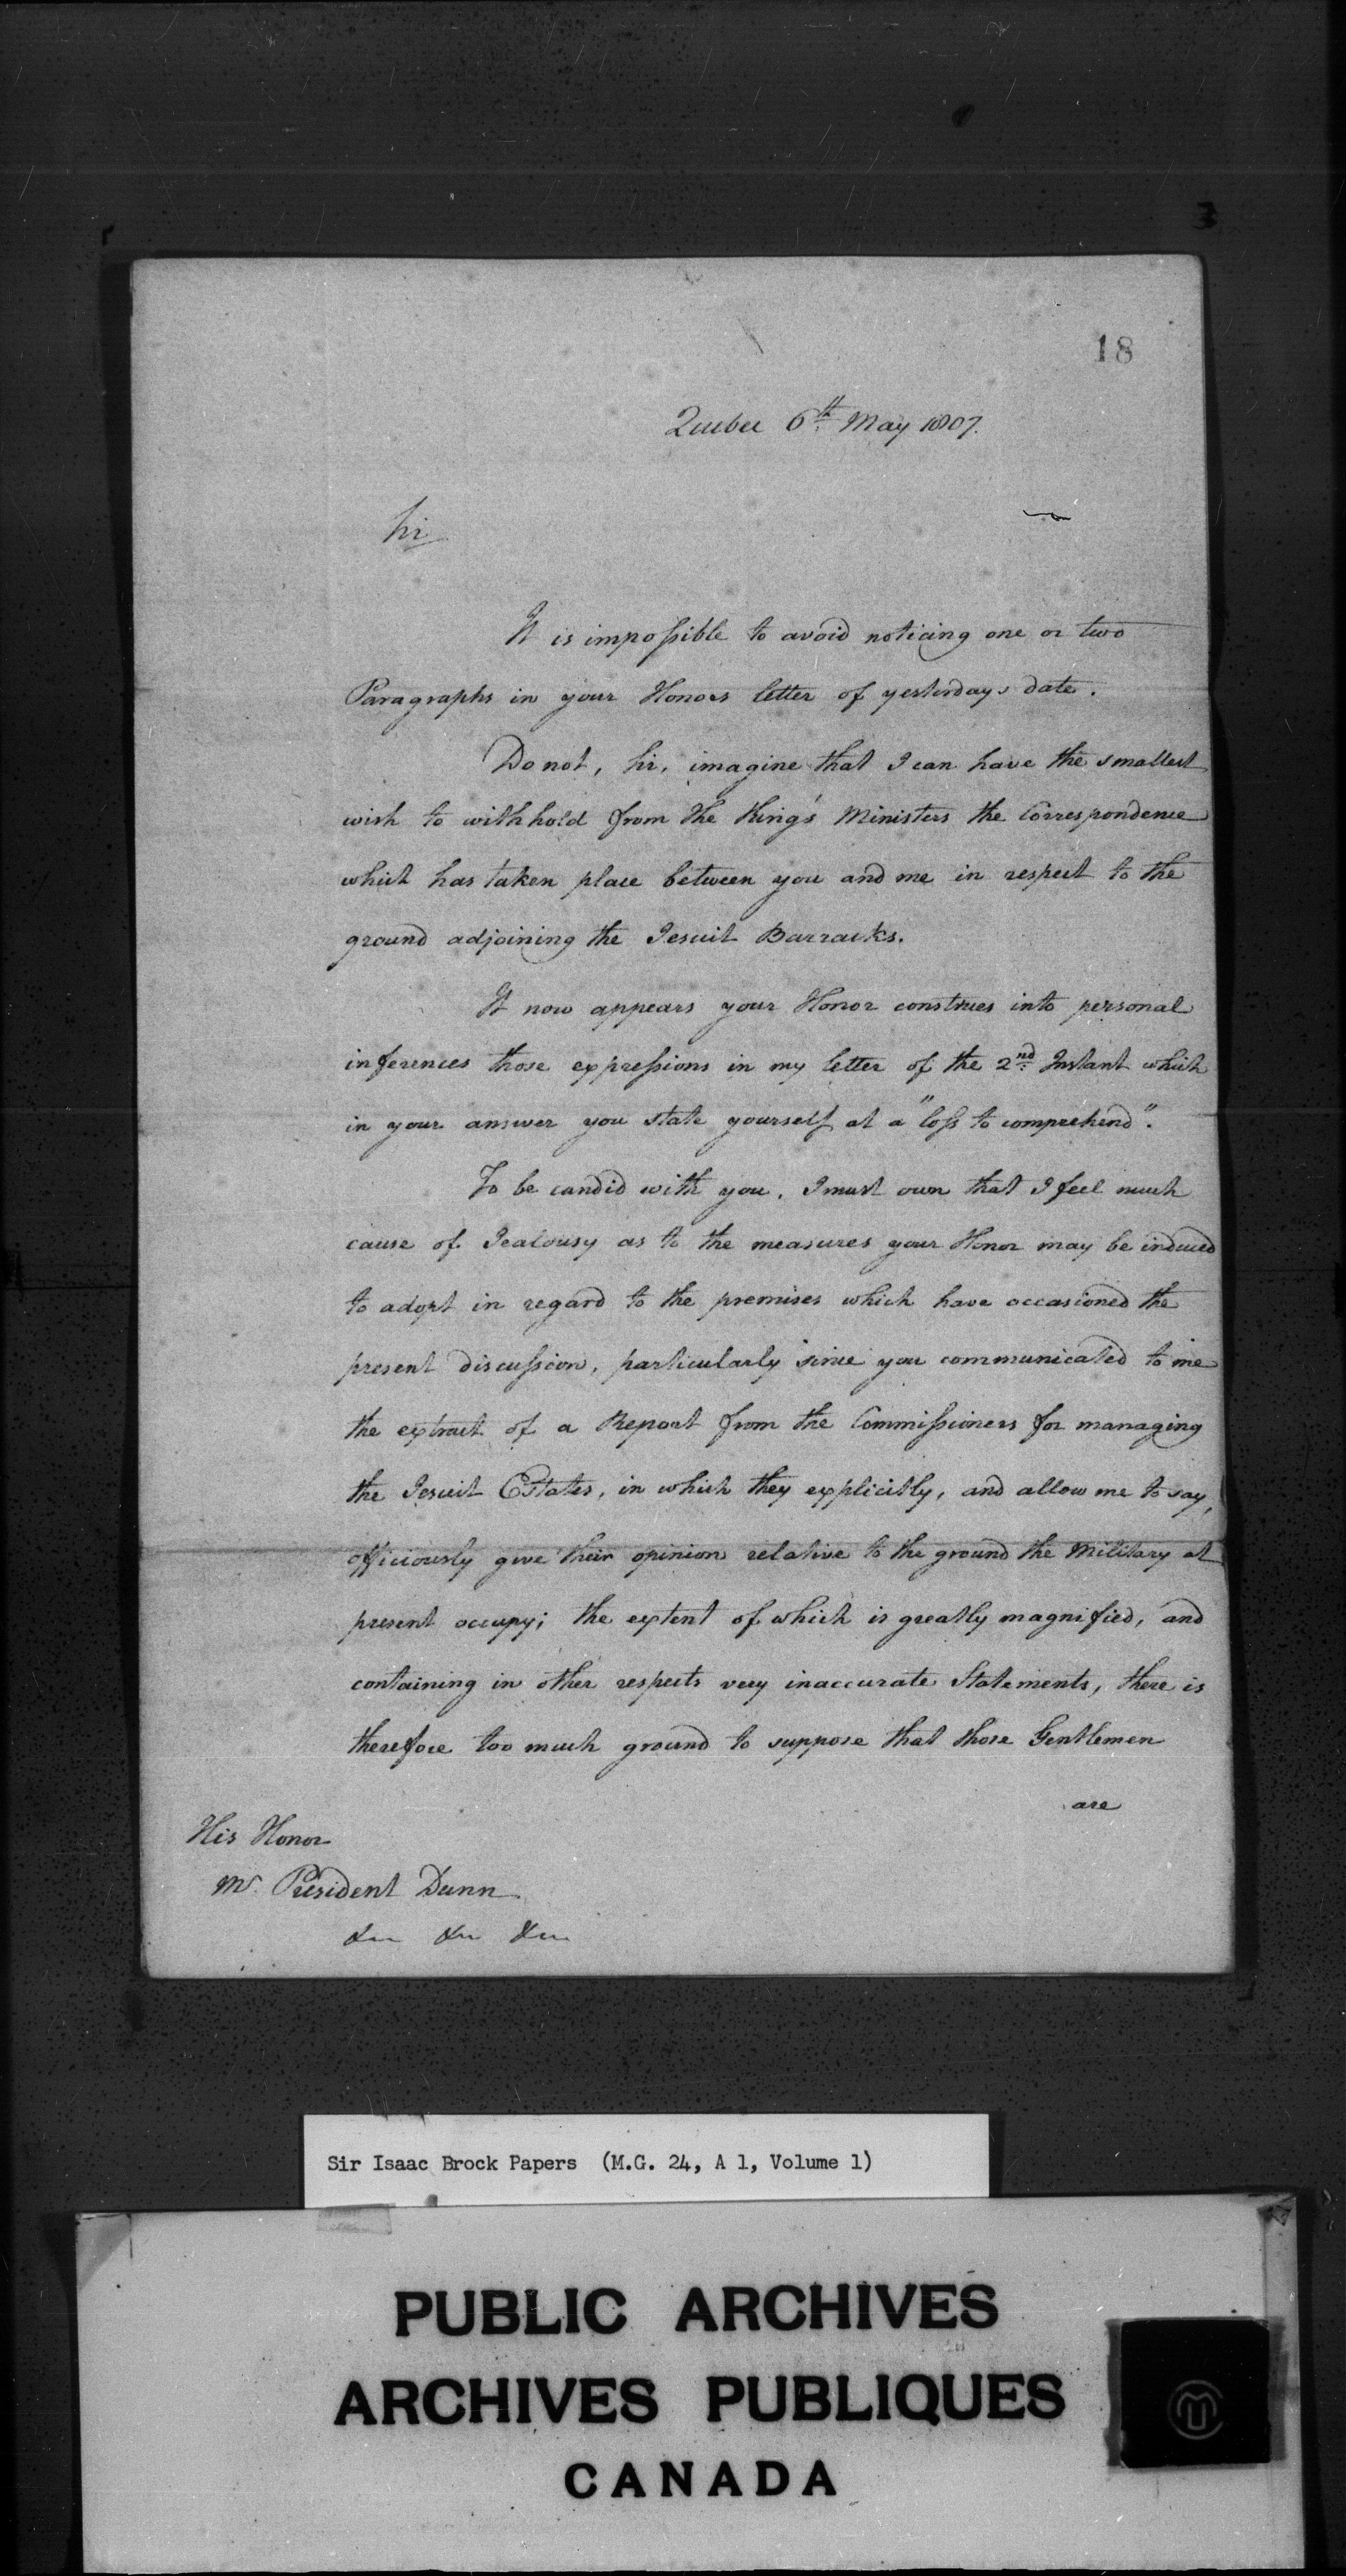 3
18
Quebec 6th May 1807.
Sir
It is impossible to avoid noticing one or two
Paragraphs in your Honors letter of yesterdays date.
Do not, Sir, imagine that I can have the smallest
wish to withhold from the King's Ministers the Correspondence
which has taken place between you and me in respect to the
ground adjoining the Jesuit Barracks.
It now appears your Honor construes into personal
inferences those expressions in my letter of the 2nd Instant which
in your answer you state yourself at a "loss to comprehend".
To be candid with you, I must own that I feel much
cause of Jealousy as to the measures your Honor may be induced
to adopt in regard to the premises which have occasioned the
present discussion, particularly since you communicated to me
the extract of a Report from the Commissioners for managing
the Jesuit Estates, in which they explicitly, and allow me to say,
officiously give their opinion relative to the ground the Military at
present occupy; the extent of which is greatly magnified, and
containing in other respects very inaccurate Statements, there is
therefore too much ground to suppose that those Gentlemen
are
His Honor
Mr. President Dunn
&c &c &c
Sir Isaac Brock Papers (M.G. 24, A 1, Volume 1)
PUBLIC ARCHIVES
ARCHIVES PUBLIQUES
CANADA